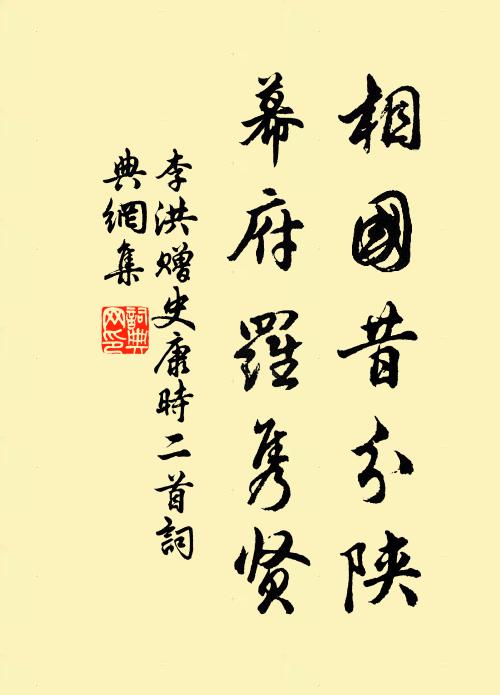 相國昔分陝
幕府羅隽贤
李洪赠史康時二首詞
典網集
詞典网印